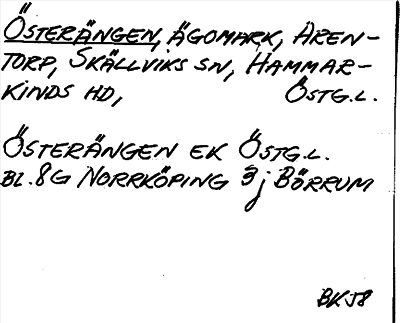 ÖSTERÄNGEN, ÄGOMARK, AREN-
TORP, SKÄLLVIKS SN, HAMMAR-
KINDS HD, ÖSTG.L.
ÖSTERÄNGEN EK ÖSTG.L.
BL. 8G NORRKÖPING 3j BÖRRUM
BKJ8